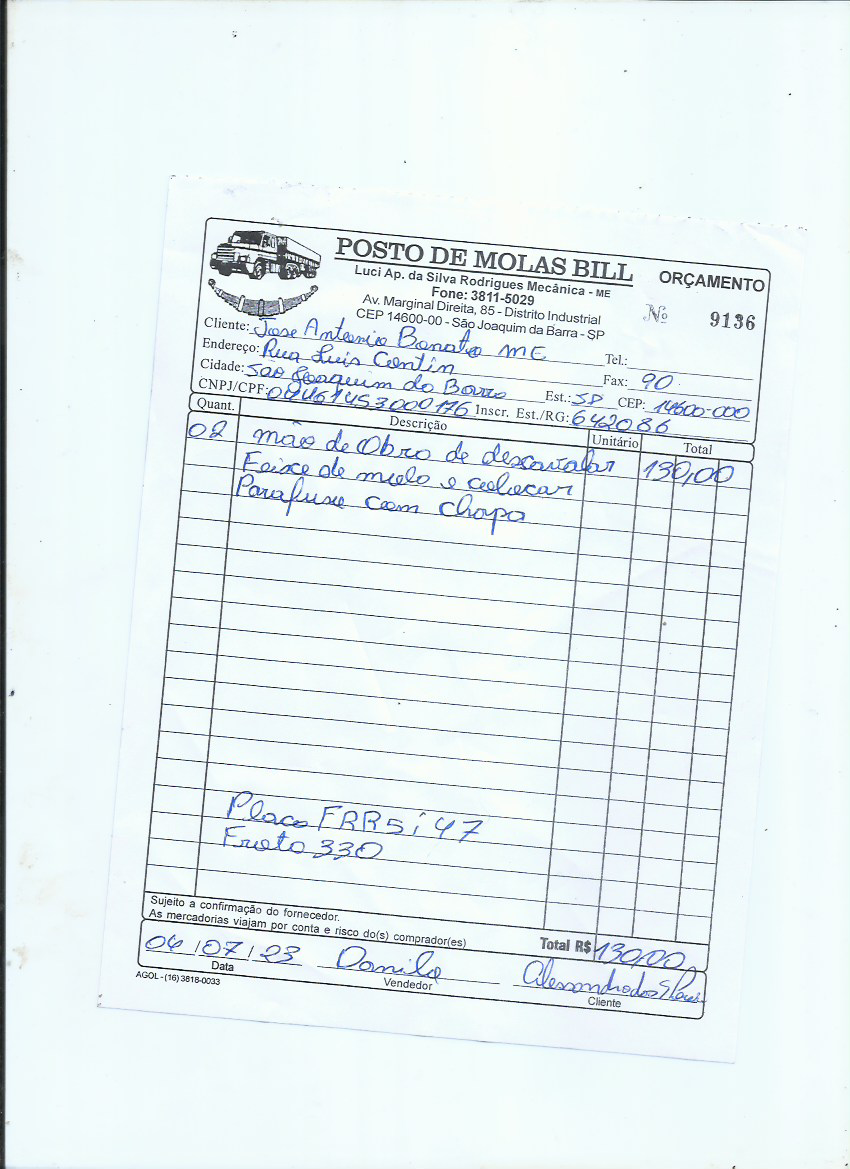 POSTO DE MOLAS BILL
ORÇAMENTO
Luci Ap. da Silva Rodrigues Mecânica - ME
Fone: 3811-5029
Av. Marginal Direita, 85 - Distrito Industrial
CEP 14600-00 - São Joaquim da Barra - SP
Nº 9136
Cliente: Jose Antonio Bonato ME Tel.:
Endereço: Rua Luis Contin Fax: 90
Cidade: São Joaquim da Barra Est.: SP CEP: 14600-000
CNPJ/CPF: Inscr. Est./RG: 642086
Quant. Descrição Unitário Total
02 mão de Obra de descavalar 130,00
Feixe de molo e colocar
Parafuso com chapa
Placa
Frota 330
Sujeito a confirmação do fornecedor.
As mercadorias viajam por conta e risco do(s) comprador(es)
Total R$ 130,00
/07/23 Danilo Alessandro dos
Data Vendedor Cliente
AGOL - (16) 3818-0033